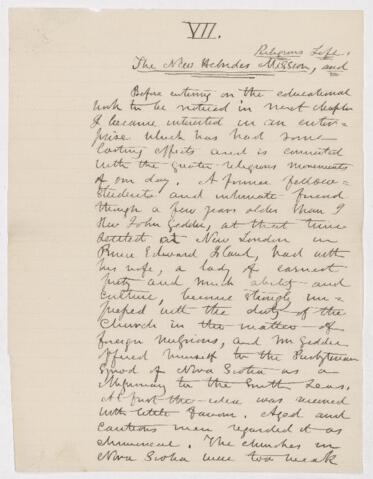 VII.
Religious Life.
The New Hebrides Mission, and
Before entering on the educational
work to be noticed in next chapter
I became interested in an enter=
prise which has had some
lasting effects and is connected
with the greater religious movements
of our day. A former fellow=
student and intimate friend
though a few years older than I
Rev John Geddie, at that time
settled at New London in
Prince Edward Island, had with
his wife, a lady of earnest
piety and much ability and
culture, become strongly im=
pressed with the duty of the
Church in the matter of
foreign missions, and Mr Geddie
offered himself to the Presbyterian
Synod of Nova Scotia as a
Missionary to the South Seas.
At first the idea was received
with little favour. Aged and
cautious men regarded it as
chimerical. The churches in
Nova Scotia were too weak